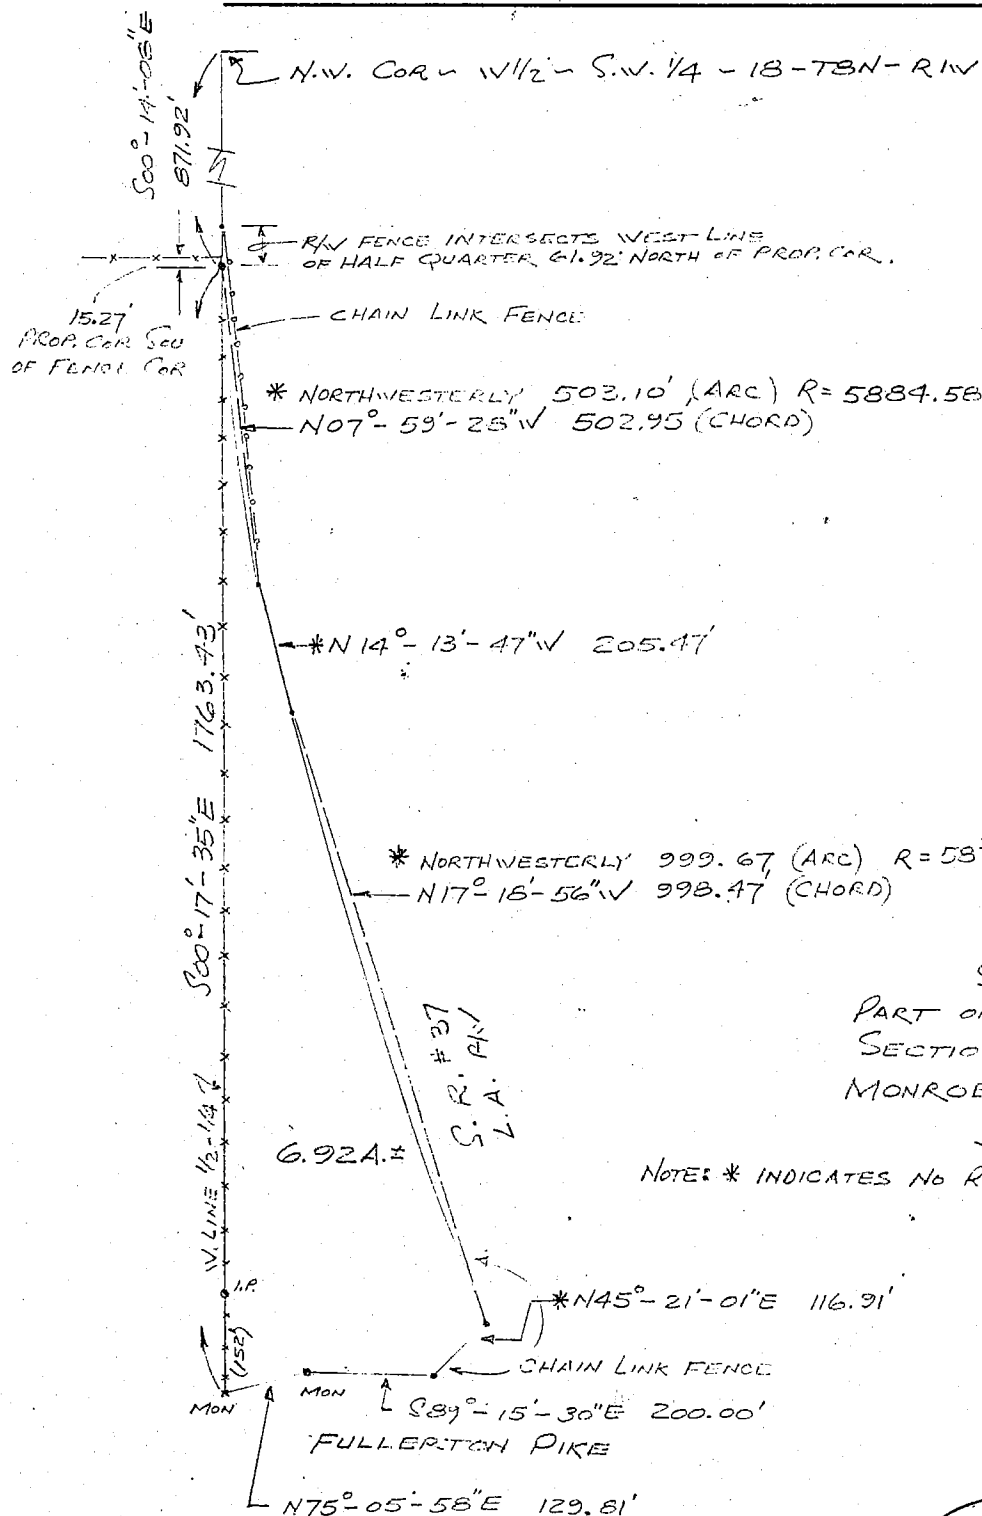 N.W. COR - W1/2 - S.W. 1/4 - 18-T8N-R1W
S00°-14'-08"E
871.92'
R/W FENCE INTERSECTS WEST LINE
OF HALF QUARTER 61.92' NORTH OF PROP. COR.
15.27'
PROP. COR SOU
OF FENCE COR
CHAIN LINK FENCE
* NORTHWESTERLY 503.10' (ARC) R=5884.58
N07°-59'-28"W 502.95 (CHORD)
*N14°-13'-47"W 205.47'
S00°-17'-35"E 1763.43'
* NORTHWESTERLY 999.67' (ARC) R=58
N17°-18'-56"W 998.47' (CHORD)
PART O
SECTIO
MONROE
S.R. #37
L.A. R/W
6.92A.±
W. LINE 1/2-1/4
NOTE: * INDICATES NO R
I.P.
*N45°-21'-01"E 116.91'
(152')
CHAIN LINK FENCE
MON
MON
S89°-15'-30"E 200.00'
FULLERTON PIKE
N75°-05'-58"E 129.81'